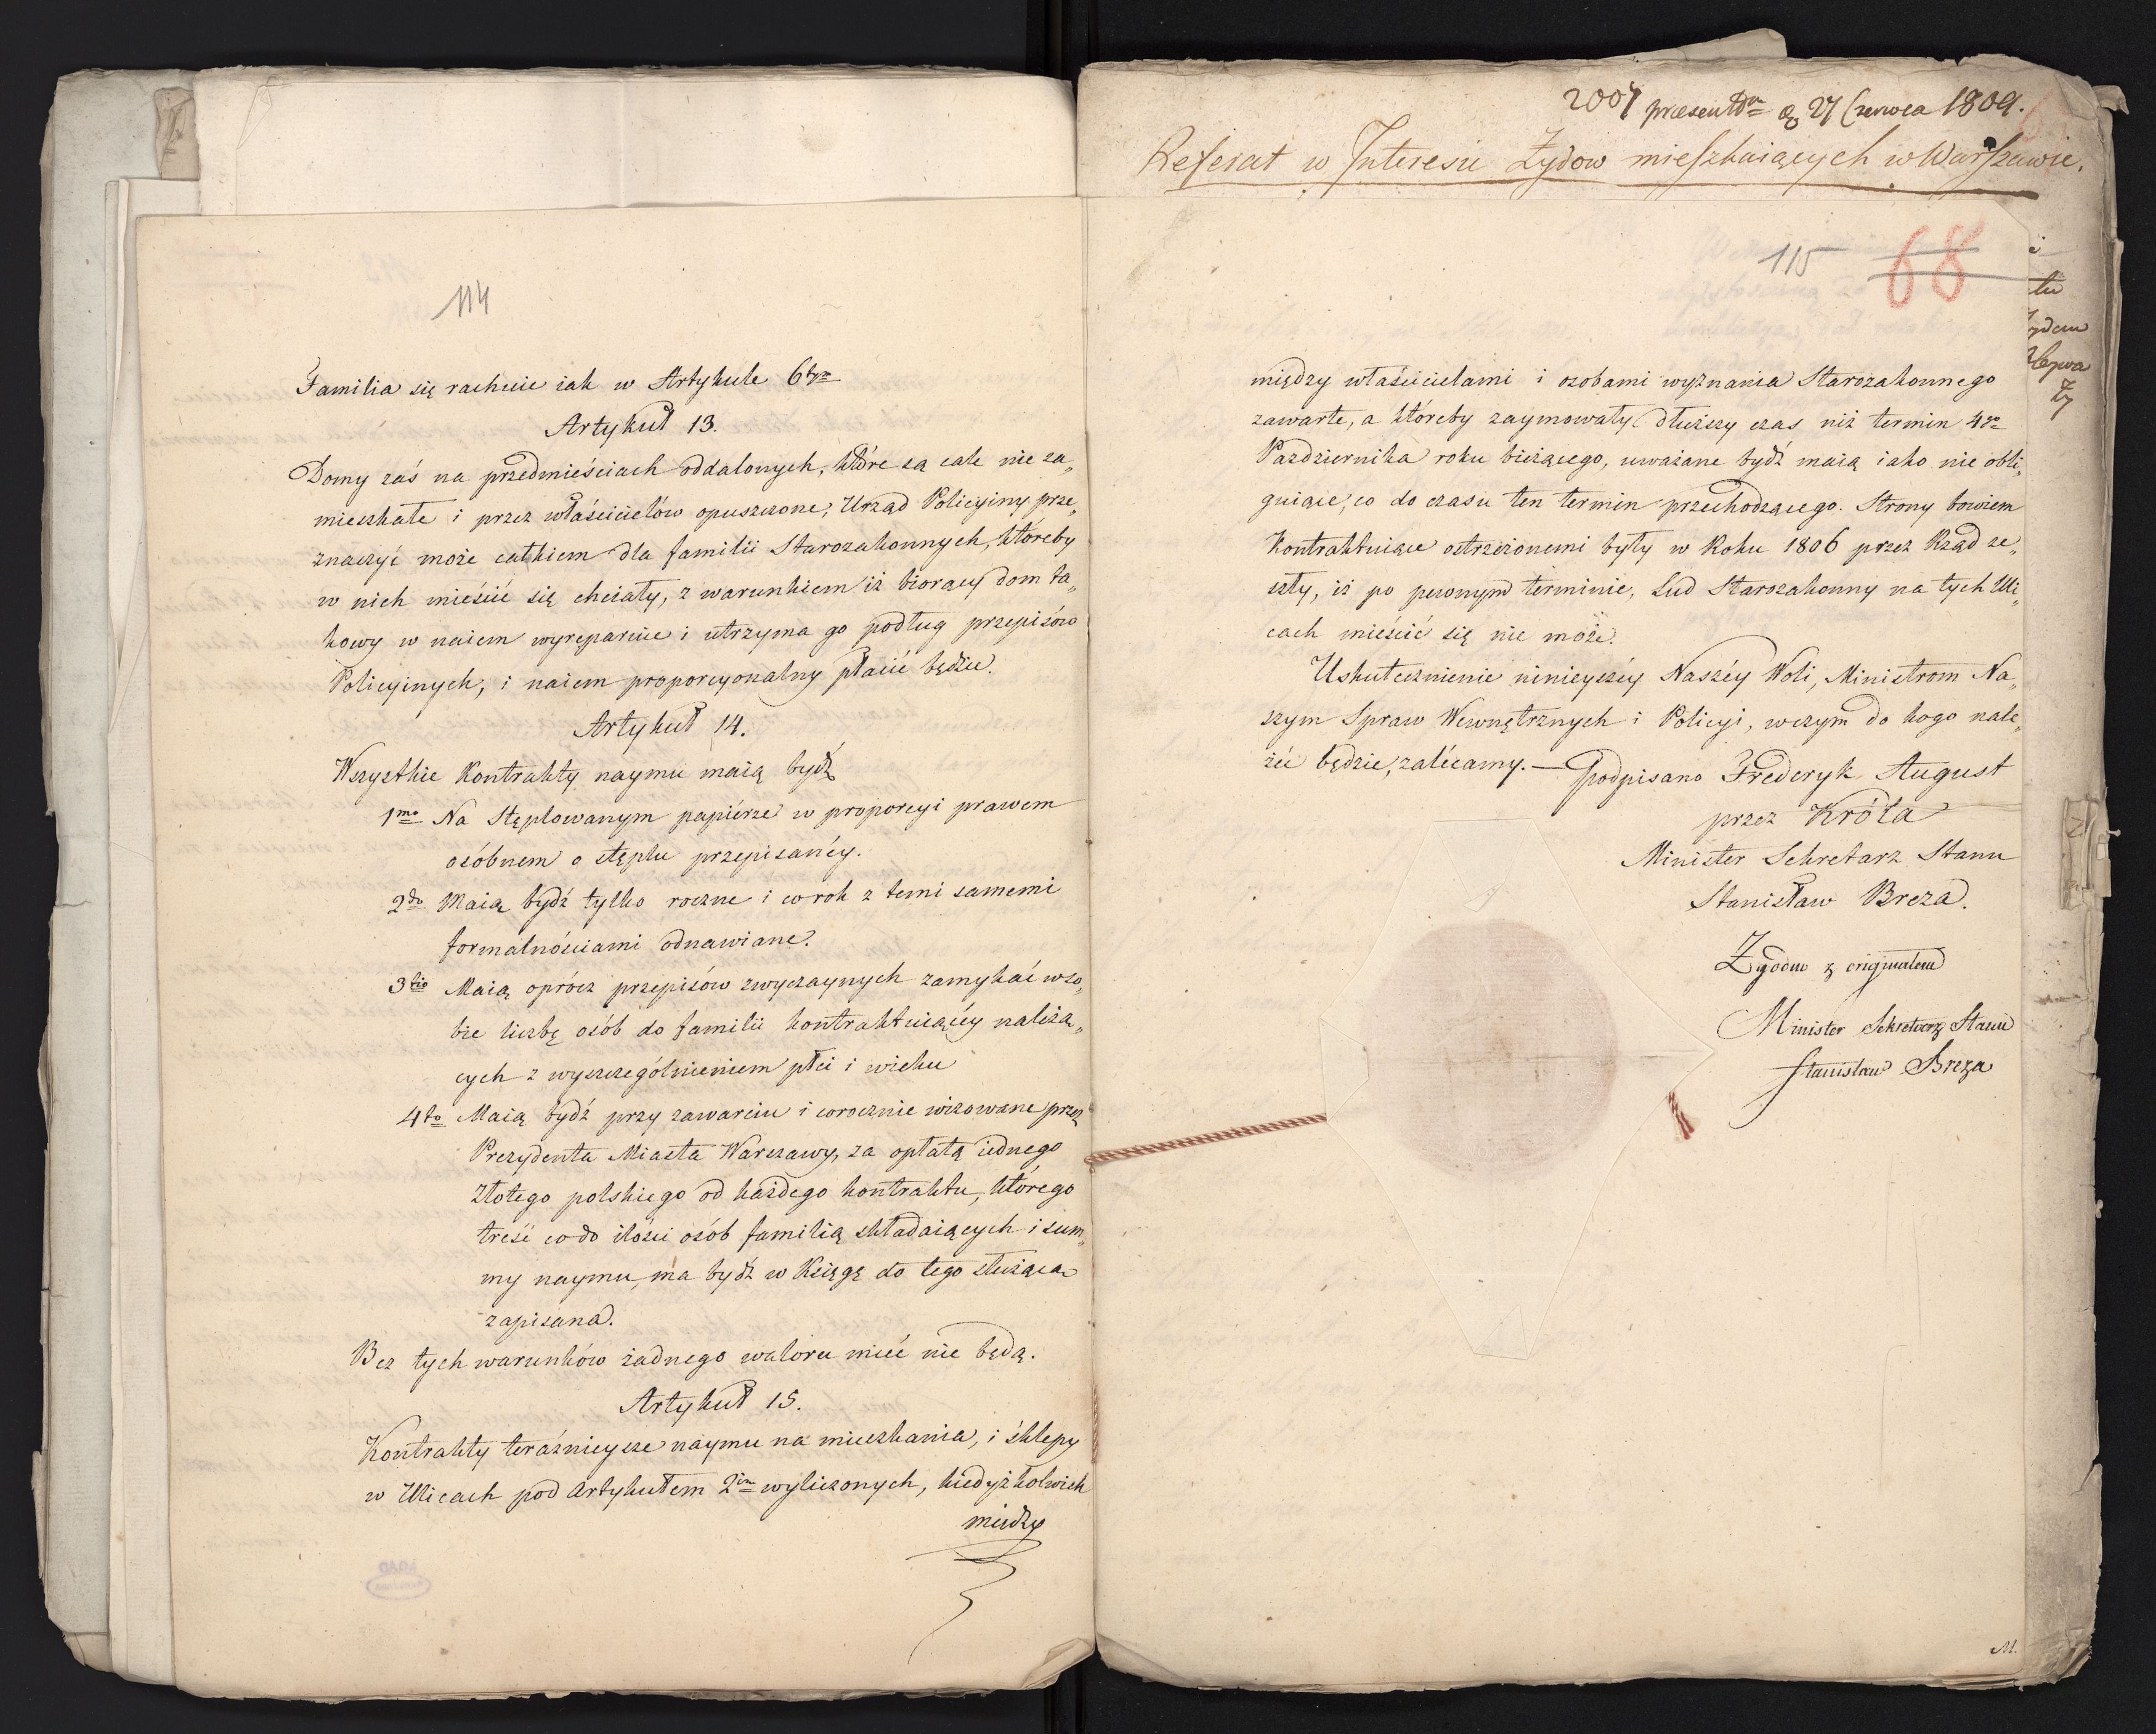 114
Familia się rachuie iak w Artykule 6tym
Artykuł 13.
Domy zaś na przedmieściach oddalonych, które są całe nie za„
mieszkałe i przez właścicielów opuszczone, Urząd Policyiny prze„
znaczyć może całkiem dla familii Starozakonnych, któreby
w nich mieścić się chciały, z warunkiem iż biorący dom ta„
kowy w naiem wyreparuie i utrzyma go podług przepisów
Policyinych, i naiem proporcyonalny płacić będzie.
Artykuł 14.
Wszystkie Kontrakty naymu maią bydź
1mo Na Stęplowanym papiérze w proporcyi prawem
osóbnem o stęplu przepisanéy.
2do Maią bydź tylko roczne i corok z temi samemi
formalnościami odnawiane.
3tio Maią oprócz przepisów zwyczaynych zamykać wso„
bie liczbę osób do familii kontraktuiącéy należą„
cych z wyszczególnieniem płci i wieku
4to Maią bydź przy zawarciu i corocznie wizowane przez
Prezydenta Miasta Warszawy, za opłatą iednego
Złotego polskiego od każdego kontraktu, którego
treść co do ilości osób familią składaiących i sum„
my naymu, ma bydź w Księgę do tego służąca
zapisana.
Bez tych warunków żadnego waloru mieć nie będą.
Artykuł 15.
Kontrakty teraźnieysze naymu na mieszkania, i sklepy
w Ulicach pod Artykułem 2im wyliczonych, kiedyżkolwiek
między
2007 praesentm d. 27 Czerwca 1809.
Referat w Interesie Żydow mieszkaiących w Warszawie.
115 68
między właścicielami i osobami wyznania Starozakonnego
zawarte, a któreby zaymowały dłuższy czas niż termin 4go
Pazdziernika roku bieżącego, uważane bydź maią iako nie obli„
guiące, co do czasu ten termin przechodzącego. Strony bowiem
Kontraktuiące ostrzeżonemi były w Roku 1806 przez Rząd ze„
szły, iż po pewnym terminie, Lud Starozakonny na tych Uli„
cach mieścić się nie może.
Uskutecznienie ninieyszéy Naszéy Woli, Ministrom Na„
szym Spraw Wewnętrznych i Policyi, wczym do kogo nale„
żéć będzie, zalécamy. — podpisano Frederyk August
przez Króla
Minister Sekretarz Stanu
Stanisław Breza.
Zgodno z originałem
Minister Sekretarz Stanu
Stanisław Breza
M.